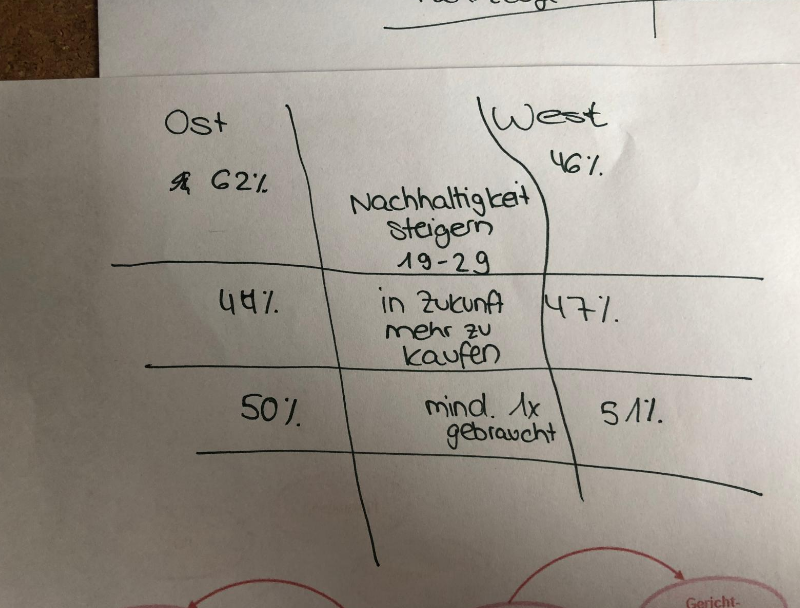 Ost
West
62%
46%
Nachhaltigkeit
steigern
19-29
44%
in Zukunft
mehr zu
kaufen
47%
50%
mind. 1x
gebraucht
51%
Gericht-